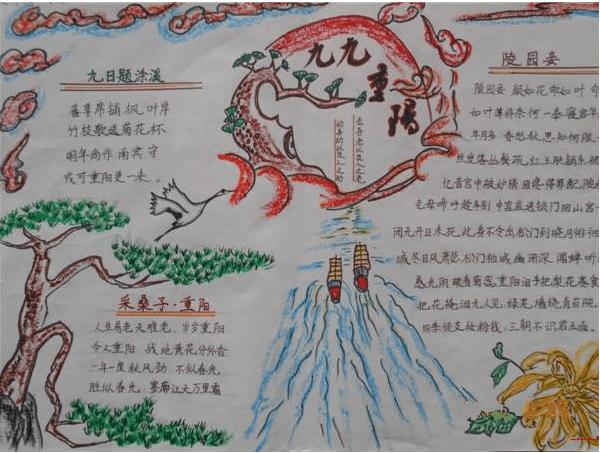 九日题涂溪
蕃草席铺枫叶岸
竹枝歌送菊花杯.
明年尚作南宾守
或可重阳更一来。
九九重陽
老吾老以及人之老
幼吾幼以及人之幼
采桑子·重阳
人生易老天难老,岁岁重阳
今又重阳 战地黄花分外香
一年一度秋风劲,不似春光
胜似春光,寥廓江天万里霜
陵园妾
陵园妾 颜如花命如叶 命
如叶薄将奈何 一奉寝宫年
年月多 春愁秋思知何限
丝发落丛鬓疏,红玉肤销系裙
忆昔宫中被妒猜 因谗得罪配陵
老母啼呼趁车别 中官监送锁门回 山宫一
闭无开日未死 此身不令出 松门到晓月徘徊
城尽日风萧瑟,松门柏城幽闭深,闻蝉听
感光阴 眼看菊蕊 重阳泪手把梨花寒食
把花掩泪无人见,绿芜墙绕青苔院,
四季徒支妆粉钱,三朝不识君王面。